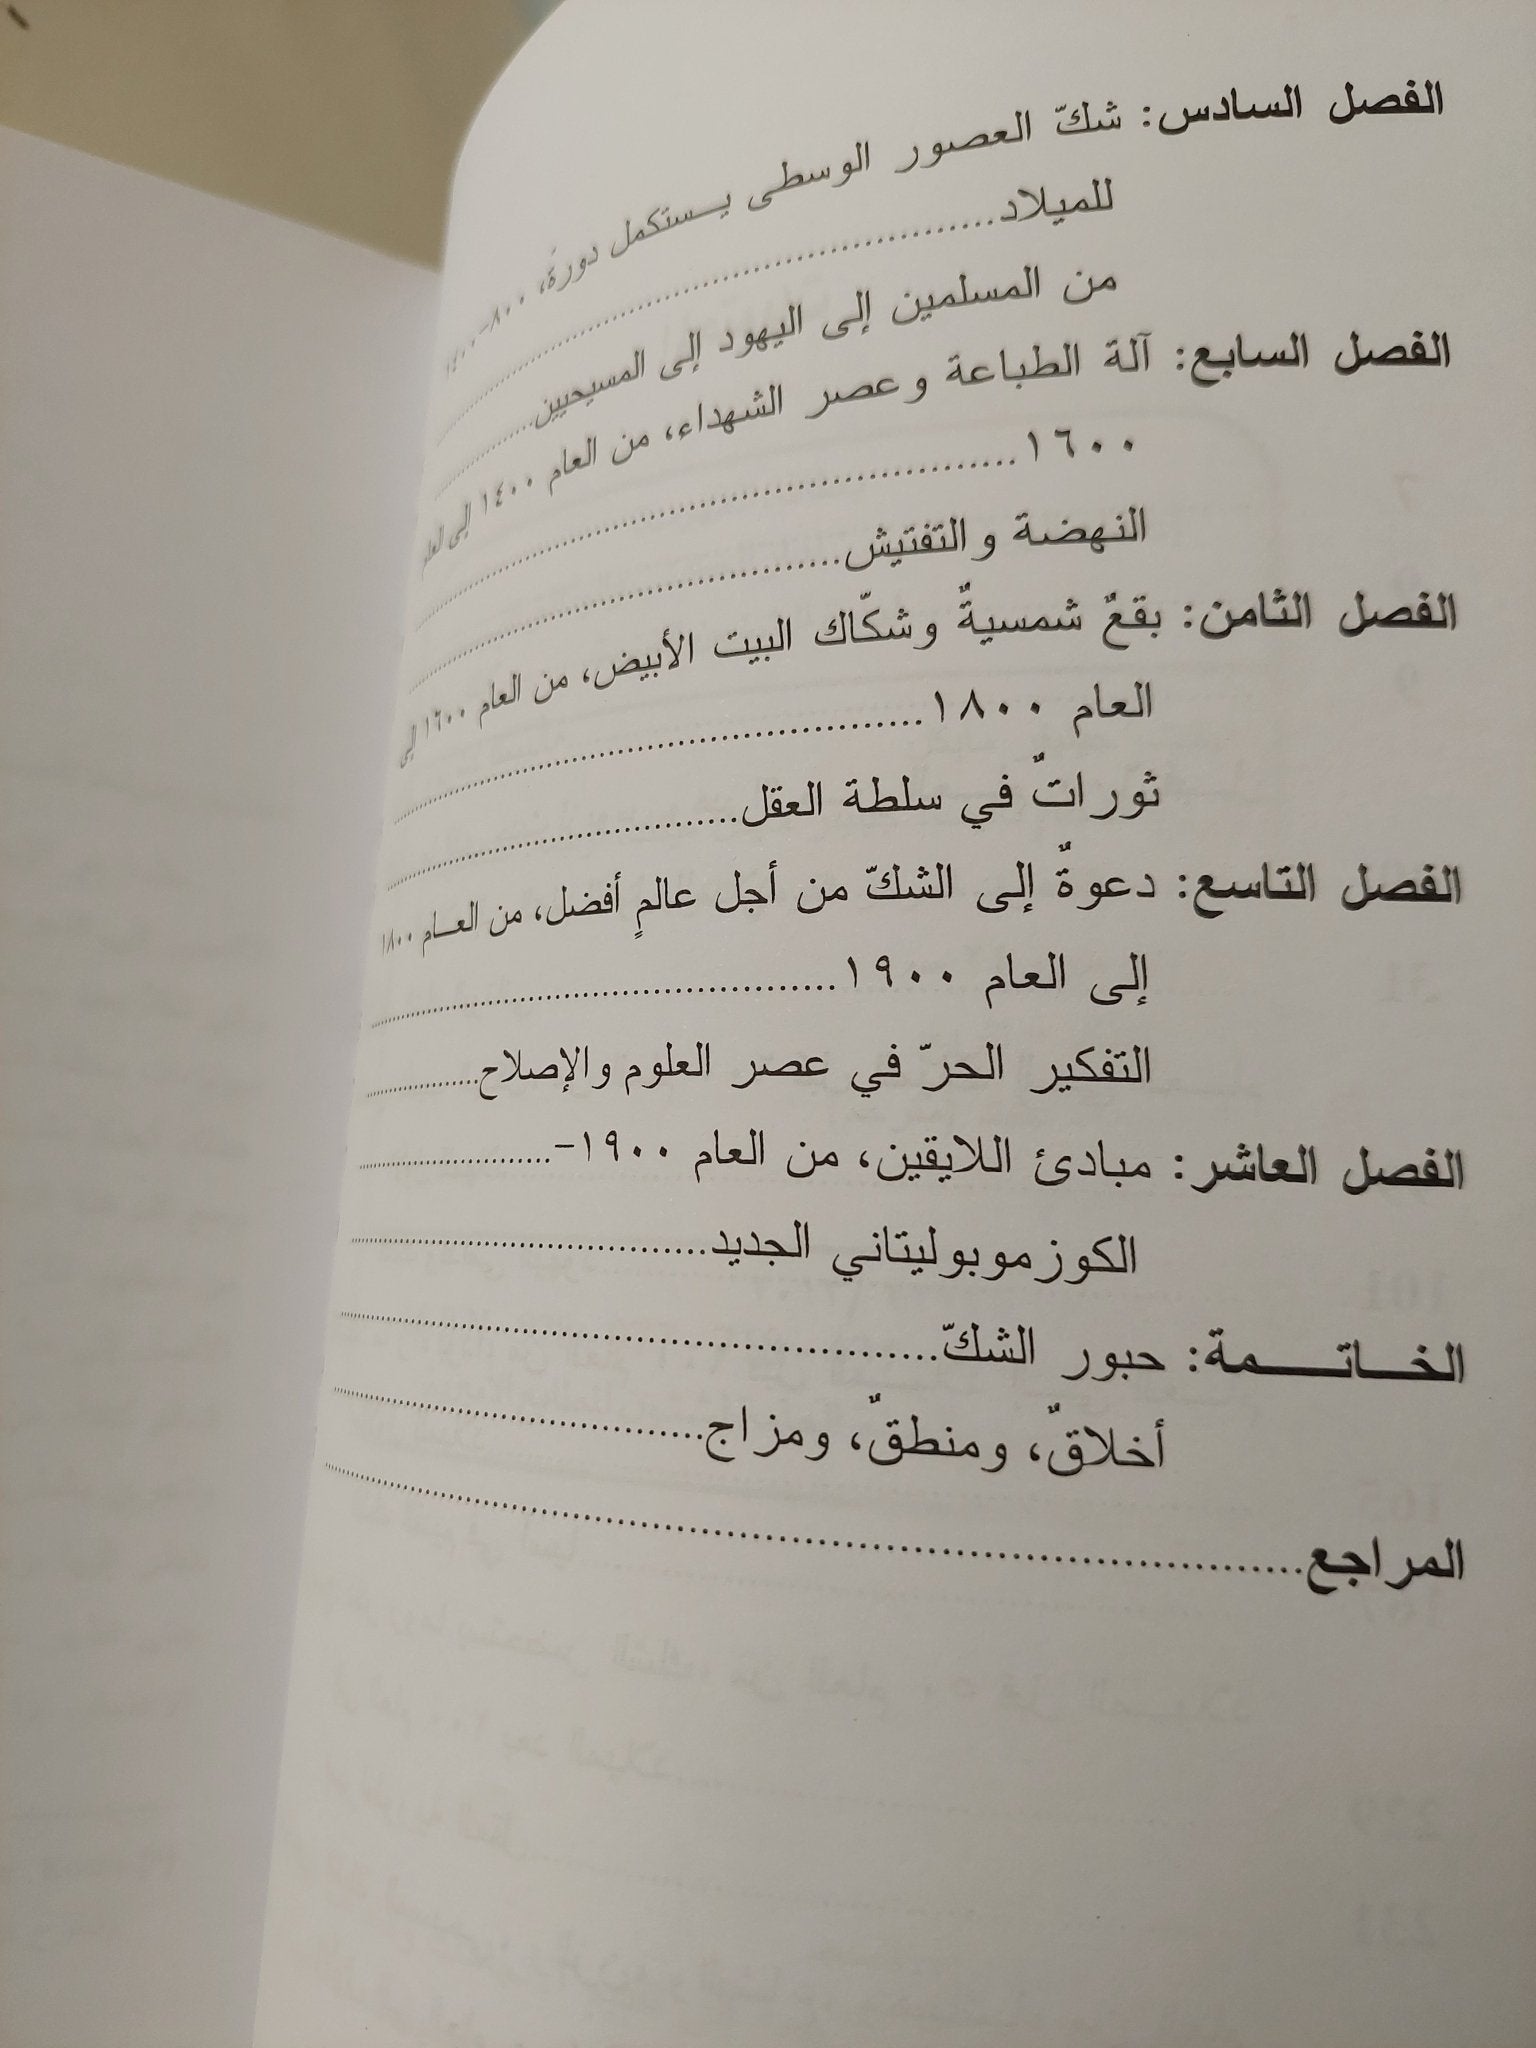 الفصل السادس: شكّ العصور الوسطى يستكمل دورة، ٨٠٠-١٤٠٠
للميلاد
من المسلمين إلى اليهود إلى المسيحيين
الفصل السابع: آلة الطباعة وعصر الشهداء، من العام ١٤٠٠ إلى العام
١٦٠٠
النهضة والتفتيش
الفصل الثامن: بقعٌ شمسيةٌ وشكّاك البيت الأبيض، من العام ١٦٠٠ إلى
العام ١٨٠٠
ثوراتٌ في سلطة العقل
الفصل التاسع: دعوةٌ إلى الشكّ من أجل عالمٍ أفضل، من العام ١٨٠٠
إلى العام ١٩٠٠
التفكير الحرّ في عصر العلوم والإصلاح
الفصل العاشر: مبادئ اللايقين، من العام ١٩٠٠-
الكوزموبوليتاني الجديد
الخاتمة: حبور الشكّ
أخلاقٌ، ومنطقٌ، ومزاج
المراجع